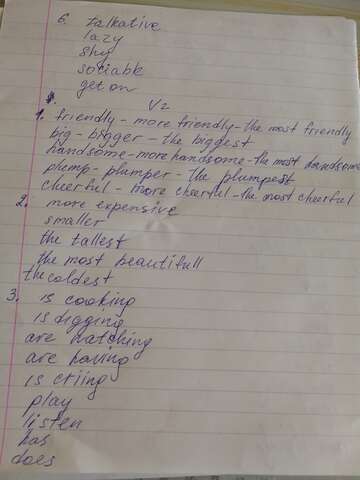 6. talkative
lazy
shy
sociable
get on
V2
1. friendly - more friendly - the most friendly
big - bigger - the biggest
handsome - more handsome - the most handsome
plump - plumper - the plumpest
cheerful - more cheerful - the most cheerful
2. more expensive
smaller
the tallest
the most beautifull
the coldest
3. is cooking
is digging
are watching
are having
is criing
play
listen
has
does